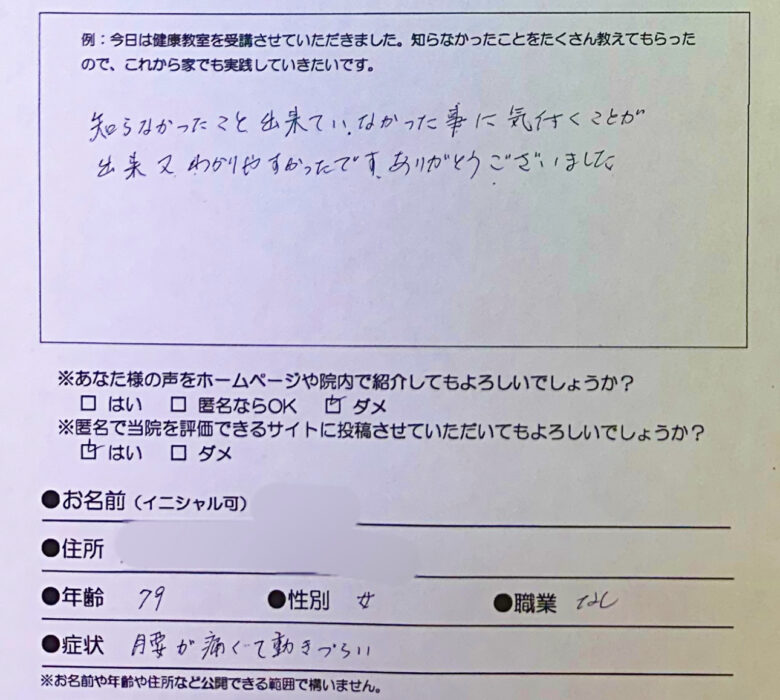 例：今日は健康教室を受講させていただきました。知らなかったことをたくさん教えてもらった
ので、これから家でも実践していきたいです。
知らなかったこと出来てい、なかった事に気付くことが
出来又わかりやすかったです。ありがとうございました
※あなた様の声をホームページや院内で紹介してもよろしいでしょうか？
□ はい □ 匿名ならOK ☑ ダメ
※匿名で当院を評価できるサイトに投稿させていただいてもよろしいでしょうか？
☑ はい □ ダメ
●お名前（イニシャル可）
●住所
●年齢 79 ●性別 女 ●職業 なし
●症状 腰が痛くて動きづらい
※お名前や年齢や住所など公開できる範囲で構いません。